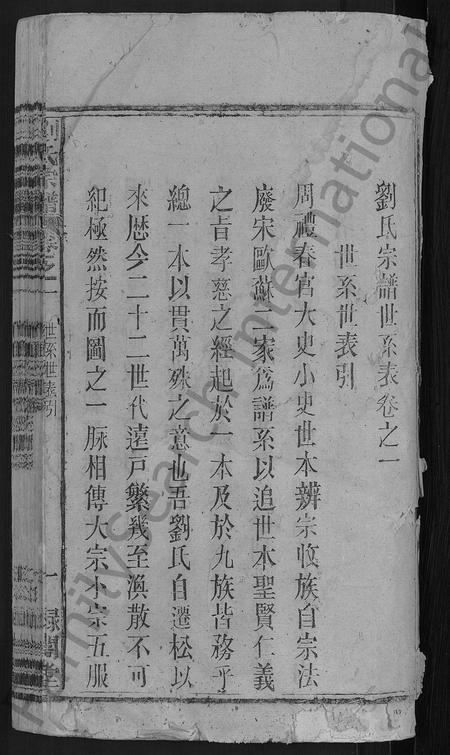 劉氏宗譜世系表卷之一
世系世表引
周禮春官大史小史世本辨宗收族自宗法
廢宋歐蘇二家爲譜系以追世本聖賢仁義
之旨孝慈之經起於一本及於九族皆務乎
總一本以貫萬殊之意也吾劉氏自遷松以
來歷今二十二世代遠戸繁幾至渙散不可
紀極然按而圖之一脉相傳大宗小宗五服
氏宗譜 卷之一 世系世表引 一
FamilySearch International